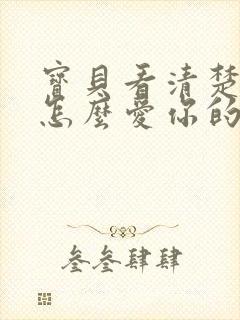 寶貝看清楚
怎麼愛你的
叁叁肆肆